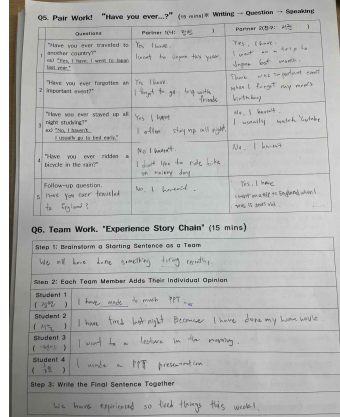 Q5. Pair Work! "Have you ever...?" (15 mins)※ Writing → Question → Speaking
Questions
Partner 1(친구:
Partner 2(친구:
1
"Have you ever traveled to another country?"
ex) "Yes, I have. I went to Japan last year."
Yes, I have.
I went to Japan this year.
Yes, I have.
I went on a trip to
Japan last month.
2
"Have you ever forgotten an important event?"
Yes I have
I forgot to go trip with
friends
There was important event
when I forgot my mom's
birthday
3
"Have you ever stayed up all night studying?"
ex) "No, I haven't.
I usually go to bed early."
Yes I have
I often stay up all night.
No, I haven't
I usually watch Youtube
4
"Have you ever ridden a bicycle in the rain?"
No I haven't
I don't like to ride bike
on rainy day
No, I haven't
5
Follow-up question.
Have you ever traveled
to England?
No. I haven't.
Yes, I have
I went on a trip to England when I
was 12 years old.
Q6. Team Work. "Experience Story Chain" (15 mins)
Step 1: Brainstorm a Starting Sentence as a Team
We all have done something tiring recently.
Step 2: Each Team Member Adds Their Individual Opinion
Student 1
I have made so much PPT.
Student 2
I have tired last night Because I have done my homework
Student 3
I went to a lecture in the morning.
Student 4
I made a PPT presentation
Step 3: Write the Final Sentence Together
We have experienced so tired things this week!